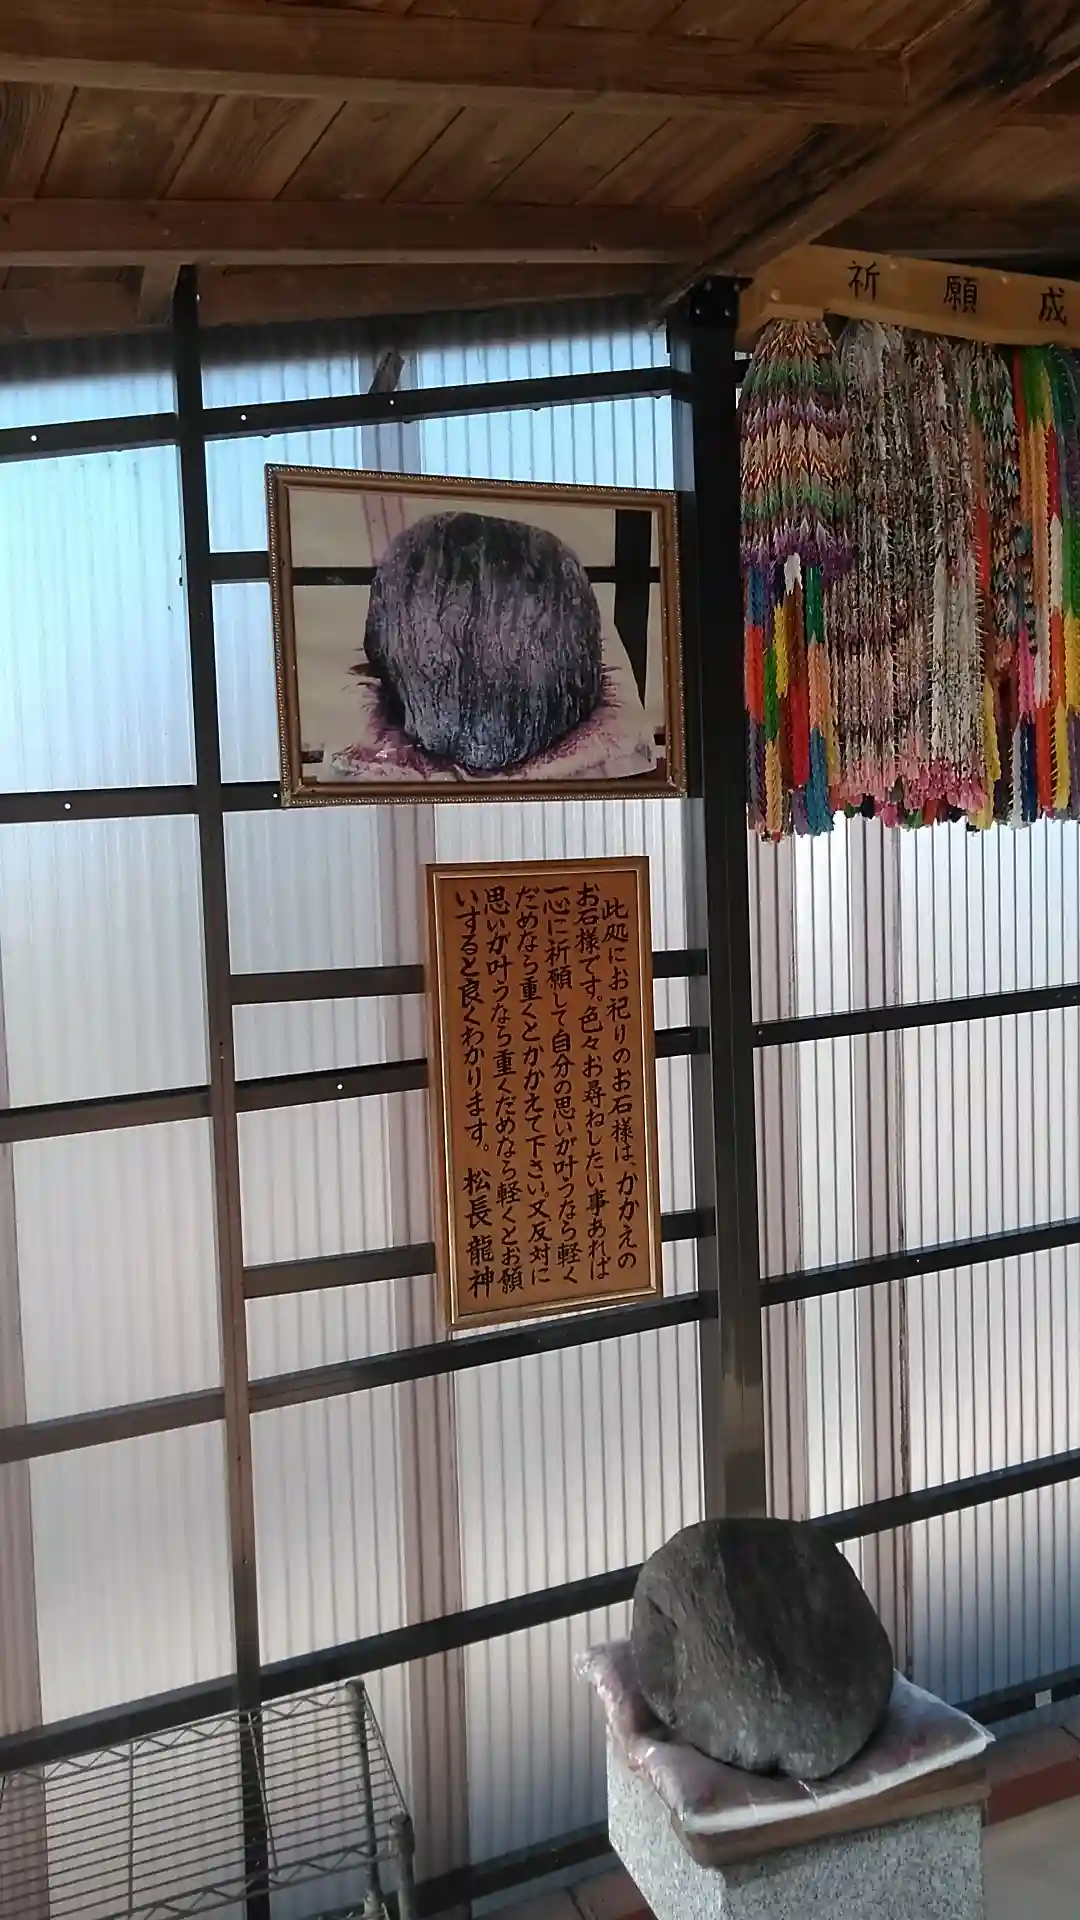 祈願成
此処にお祀りのお石様は、かかえの
お石様です。色々お尋ねしたい事あれば
一心に祈願して自分の思いが叶うなら軽く
だめなら重くとかかえて下さい。又反対に
思いが叶うなら重くだめなら軽くとお願
いすると良くわかります。 松長龍神